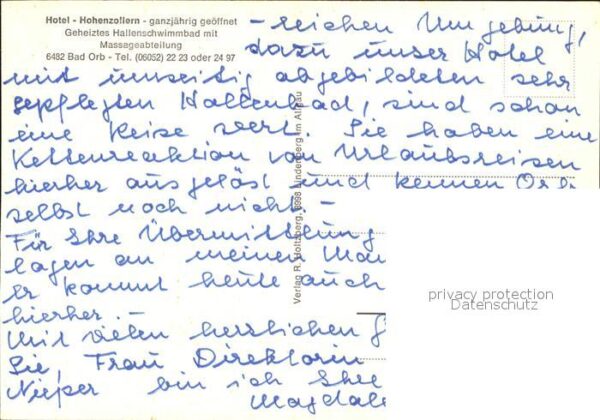 Hotel - Hohenzollern - ganzjährig geöffnet
Geheiztes Hallenschwimmbad mit
Massageabteilung
6482 Bad Orb - Tel. (06052) 22 23 oder 24 97
-reichen Umgebung,
dazu unser Hotel
mit umseitig abgebildeten sehr
gepflegten Hallenbad, sind schon
eine Reise wert. Sie haben eine
Kettenreaktion von Urlaubsreisen
hierher ausgelöst und kennen Orb
selbst noch nicht. -
Für Ihre Übermittlung
lagen an meinen
Er kommt heute auch
hierher. -
Mit vielen herzlichen
Sie, Frau Direktorin
Nieper bin ich Ihre
Magdale
Verlag R. Holtzberg, 8998 Lindenberg im Allgäu
privacy protection
Datenschutz